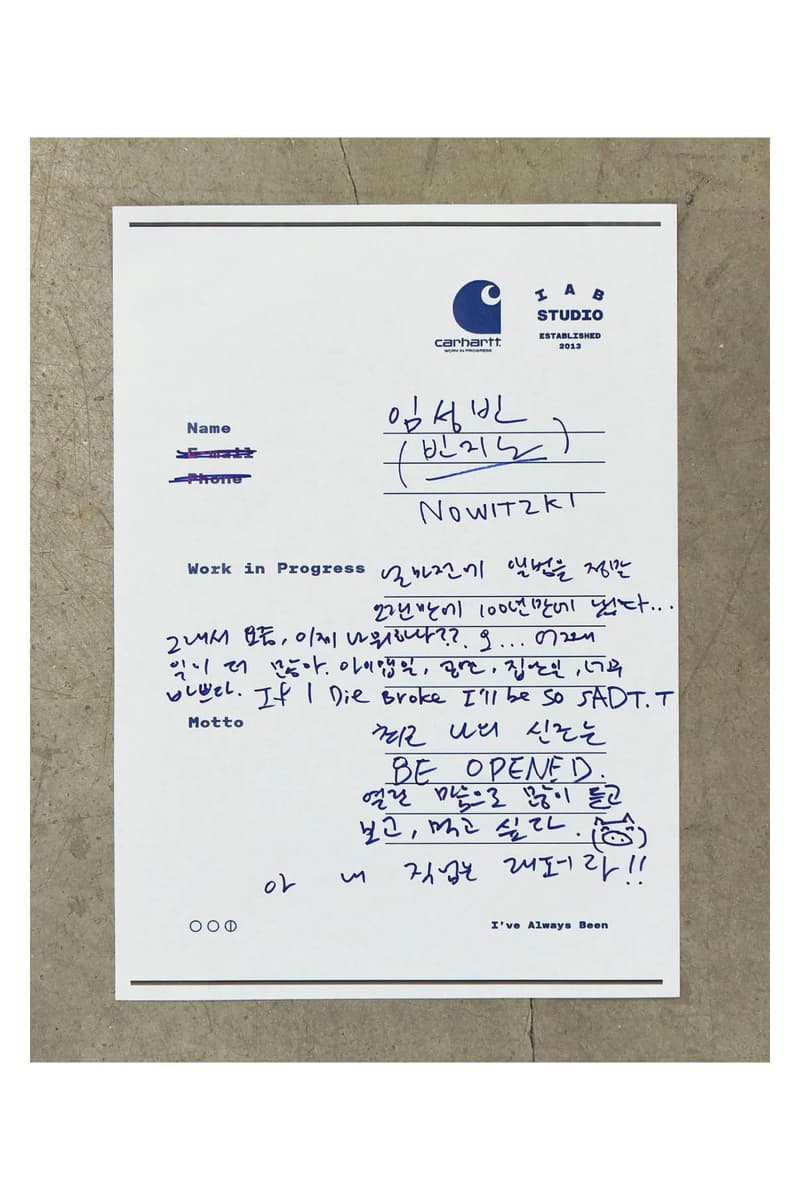 carhartt.
WORK IN PROGRESS
IAB
STUDIO
ESTABLISHED
2013
Name
임성빈
E-mail
(빈지노)
Phone
NOWITZKI
Work in Progress
얼마전에 앨범을 정말
오랜만에 100년만에 냈다...
그래서 보통, 이제 나위하나??. 오... 어째
일이 더 많아. 아이앱일, 공연, 집안일, 너무
바쁘다. If I Die Broke I'll be so SAD T.T
Motto
최근 나의 신조는
BE OPENED.
열린 마음으로 많이 듣고
보고, 먹고 싶다.
아 내 직업는 래퍼라!!
I've Always Been